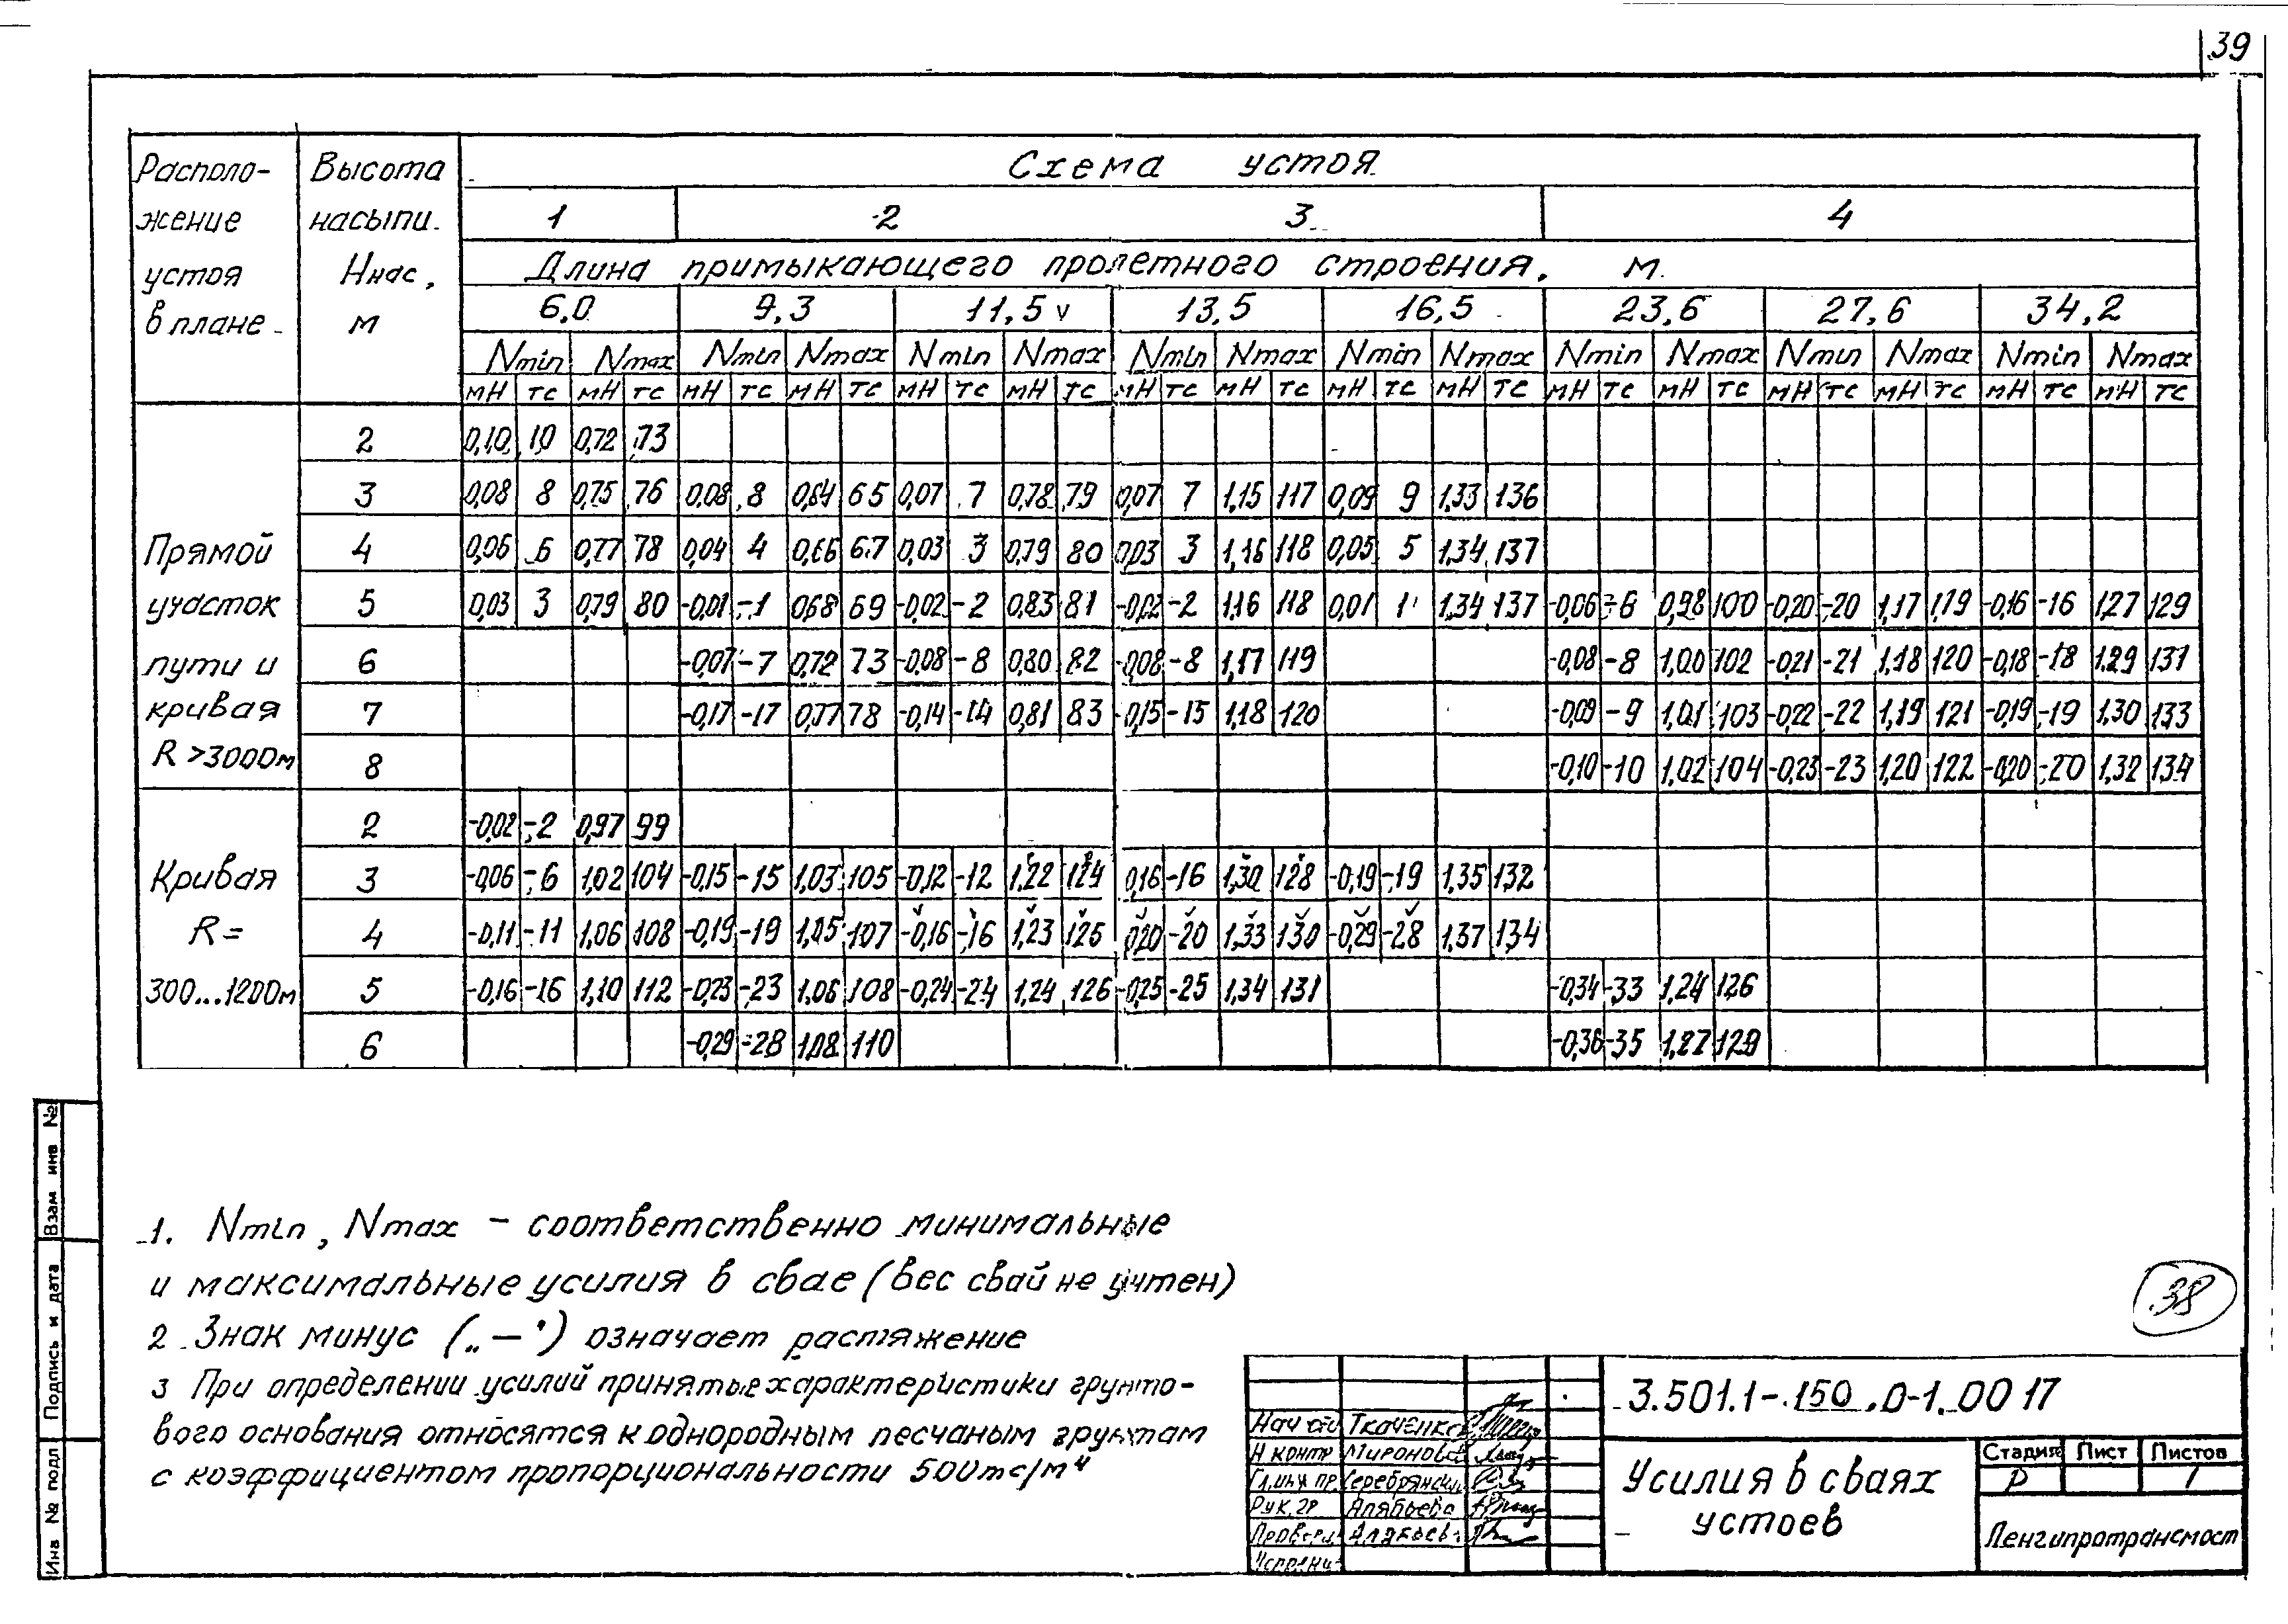 39
Располо- Высота Схема устоя
жение насыпи 1 2 3 4
устоя Ннас, Длина примыкающего пролетного строения, м
в плане м 6,0 9,3 11,5 13,5 16,5 23,6 27,6 34,2
Nmin Nmax Nmin Nmax Nmin Nmax Nmin Nmax Nmin Nmax Nmin Nmax Nmin Nmax Nmin Nmax
мН тс мН тс мН тс мН тс мН тс мН тс мН тс мН тс мН тс мН тс мН тс мН тс мН тс мН тс мН тс мН тс
Прямой участок пути и кривая R >3000м
2 0,10 10 0,72 73
3 0,08 8 0,75 76 0,08 8 0,64 65 0,07 7 0,78 79 0,07 7 1,15 117 0,09 9 1,33 136
4 0,06 6 0,77 78 0,04 4 0,66 67 0,03 3 0,79 80 0,03 3 1,16 118 0,05 5 1,34 137
5 0,03 3 0,79 80 -0,01 -1 0,68 69 -0,02 -2 0,83 81 -0,02 -2 1,16 118 0,01 1 1,34 137 -0,06 -6 0,98 100 -0,20 -20 1,17 119 -0,16 -16 1,27 129
6 -0,07 -7 0,72 73 -0,08 -8 0,80 82 -0,08 -8 1,17 119 -0,08 -8 1,00 102 -0,21 -21 1,18 120 -0,18 -18 1,29 131
7 -0,17 -17 0,77 78 -0,14 -14 0,81 83 -0,15 -15 1,18 120 -0,09 -9 1,01 103 -0,22 -22 1,19 121 -0,19 -19 1,30 133
8 -0,10 -10 1,02 104 -0,23 -23 1,20 122 -0,20 -20 1,32 134
Кривая R= 300...1200м
2 -0,02 -2 0,97 99
3 -0,06 -6 1,02 104 -0,15 -15 1,03 105 -0,12 -12 1,22 124 0,16 -16 1,30 128 -0,19 -19 1,35 132
4 -0,11 -11 1,06 108 -0,19 -19 1,05 107 -0,16 -16 1,23 125 0,20 -20 1,33 130 -0,29 -28 1,37 134
5 -0,16 -16 1,10 112 -0,23 -23 1,06 108 -0,24 -24 1,24 126 -0,25 -25 1,34 131 -0,34 -33 1,24 126
6 -0,29 -28 1,08 110 -0,36 -35 1,27 129
1. Nmin, Nmax – соответственно минимальные
и максимальные усилия в свае (вес свай не учтен)
2 Знак минус („—") означает растяжение
3 При определении усилий принятые характеристики грунто-
вого основания относятся к однородным песчаным грунтам
с коэффициентом пропорциональности 500тс/м⁴
38
Инв № подл Подпись и дата Взам инв №
3.501.1-150.0-1.0017
Нач отд Ткаченко
Н контр Миронова
Гл.инж пр. Серебрянский
Рук. гр Алябьева
Провер. Алябьев
Исполни
Усилия в сваях
устоев
Стадия Лист Листов
Р 1
Ленгипротрансмост